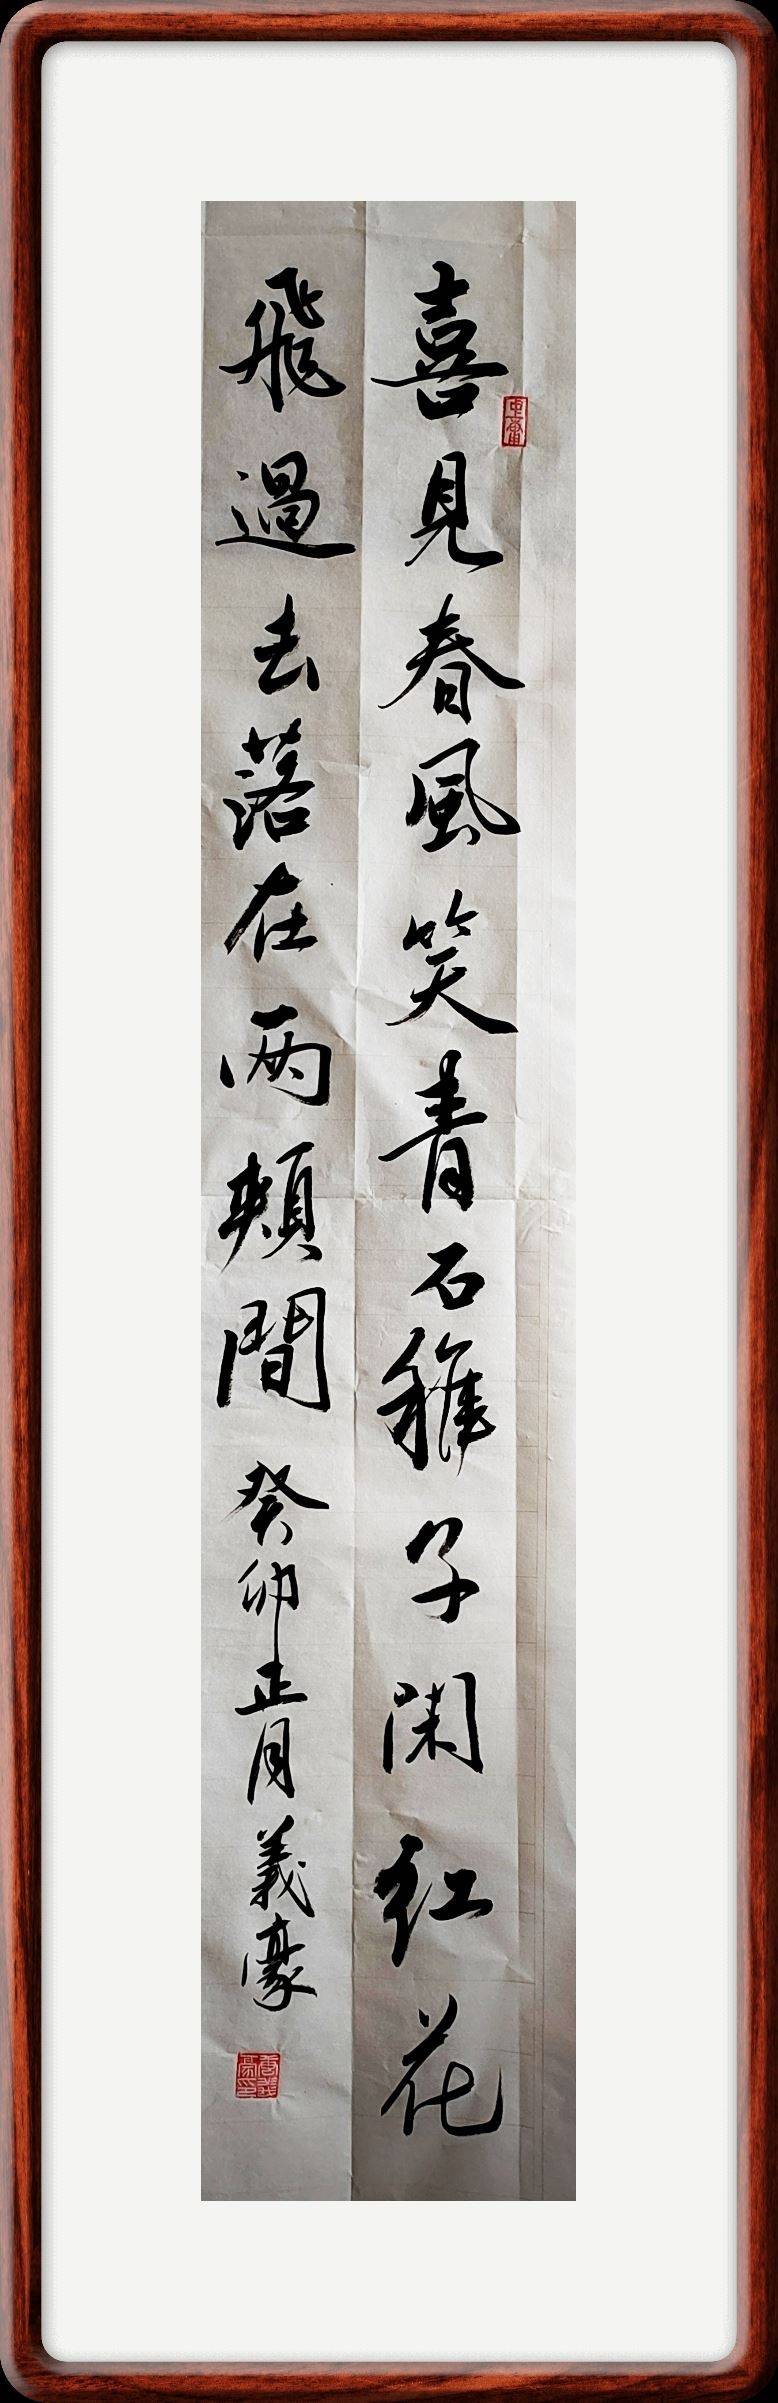 喜見春風笑青石稚子閑紅花
飛過去落在两頰間癸卯正月義豪